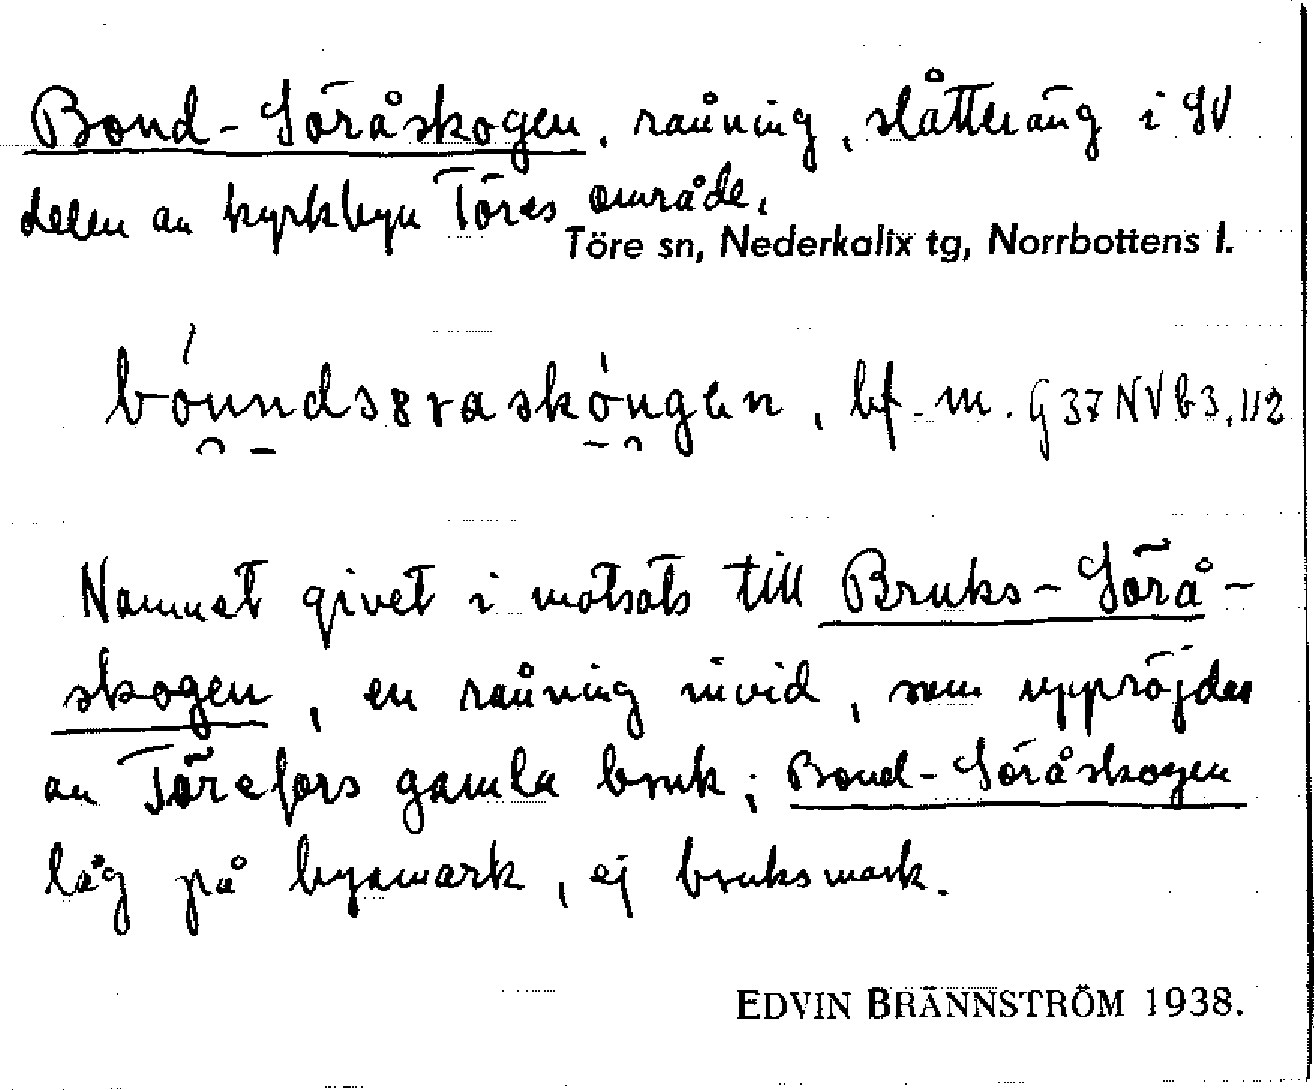 Bond-Söråskogen, raåning, slåtteräng i SV
delen av kyrkbyn Töres område.
Töre sn, Nederkalix tg, Norrbottens l.
bf. m. G37 NVb3, 112
Namnet givet i motsats till Bruks-Sörå-
skogen, en raåning invid, som uppröjdes
av Törefors gamla bruk; Bond-Söråskogen
låg på byamark, ej bruksmark.
EDVIN BRÄNNSTRÖM 1938.